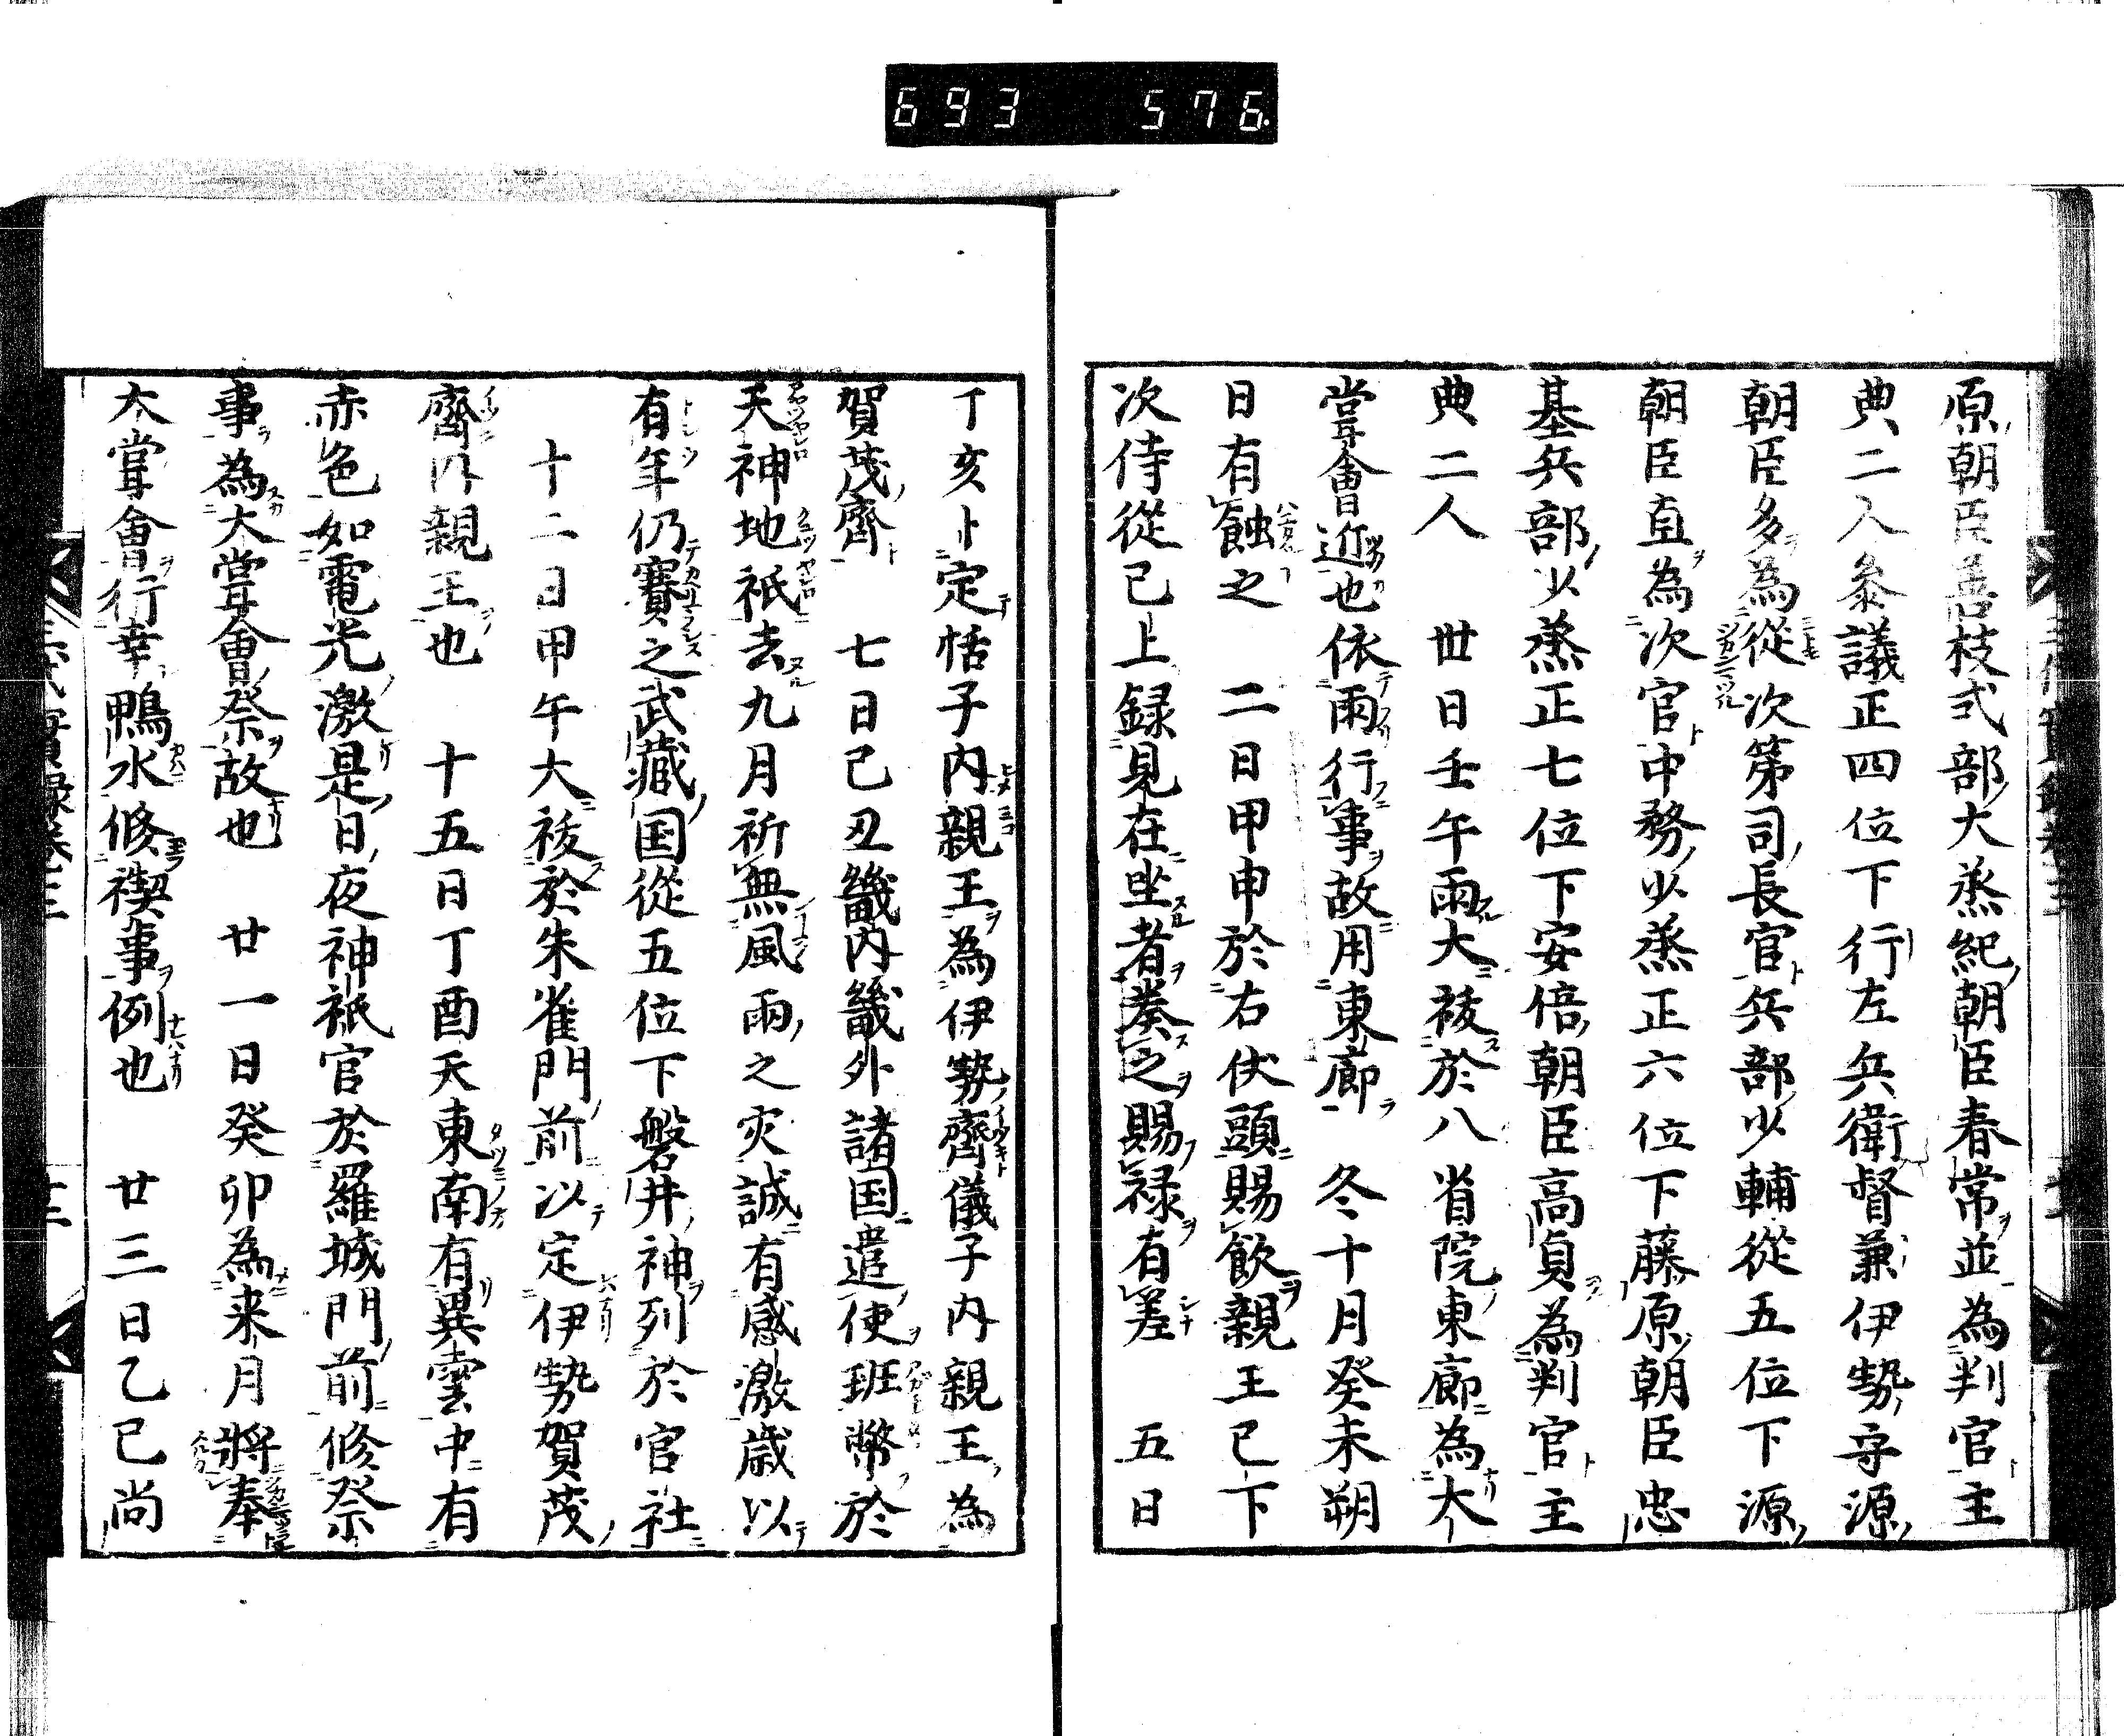 693 576
原朝臣善枝式部大烝紀朝臣春常並為判官主
典二人叅議正四位下行左兵衛督兼伊勢守源
朝臣多為從次第司長官兵部少輔從五位下源
朝臣直為次官中務少烝正六位下藤原朝臣忠
基兵部少烝正七位下安倍朝臣高貞為判官主
典二人　丗日壬午雨大祓於八省院東廊為大
甞會近也依雨行事故用東廊　冬十月癸未朔
日有蝕之　二日甲申於右仗頭賜飲親王已下
次侍從已上録見在坐者奏之賜禄有差　五日
丁亥卜定恬子内親王為伊勢齊儀子内親王為
賀茂齊　七日己丑畿内畿外諸国遣使班幣於
天神地祇去九月祈無風雨之灾誠有感激歳以
有年仍賽之武藏国從五位下磐井神列於官社
十二日甲午大祓於朱雀門前以定伊勢賀茂
齊内親王也　十五日丁酉天東南有異雲中有
赤色如電光激是日夜神祇官於羅城門前修祭
事為大甞會祭故也　廿一日癸卯為来月將奉
大甞會行幸鴨水修禊事例也　廿三日乙巳尚
三代實録巻三